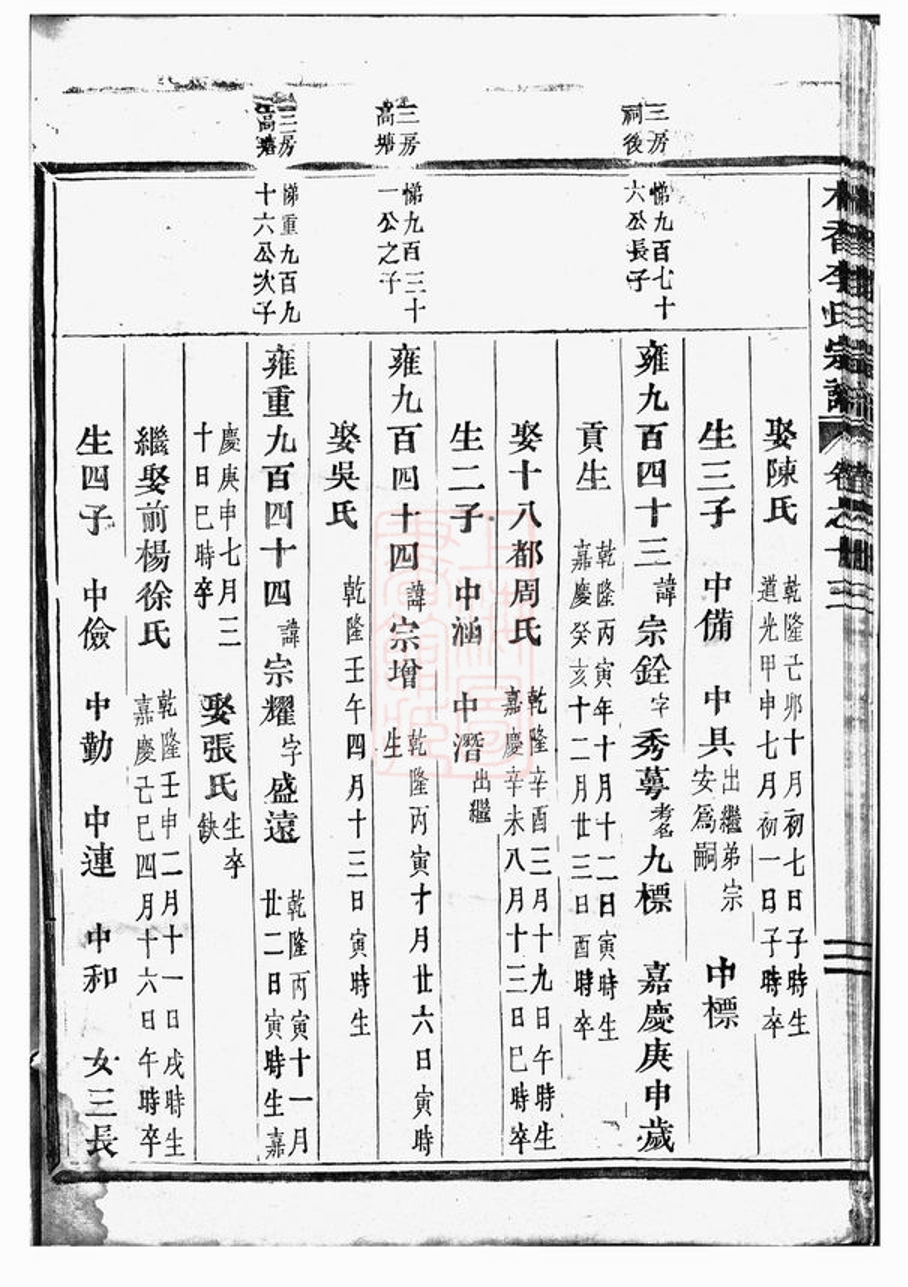 木香李氏宗譜 卷之十三
娶陳氏 乾隆己卯十月初七日子時生
道光甲申七月初一日子時卒
生三子 中備 中具 出繼弟宗
安為嗣 中標
三房
祠後
悌九百七十
六公長子
雍九百四十三 諱宗銓 字秀蕚 考名九標 嘉慶庚申歲
貢生 乾隆丙寅年十月十二日寅時生
嘉慶癸亥十二月廿三日酉時卒
娶十八都周氏 乾隆辛酉三月十九日午時生
嘉慶辛未八月十三日巳時卒
生二子 中涵 中潛 出繼
三房
高塘
悌九百三十
一公之子
雍九百四十四 諱宗增 乾隆丙寅十月廿六日寅時
生
娶吳氏 乾隆壬午四月十三日寅時生
三房
高塘
悌重九百九
十六公次子
雍重九百四十四 諱宗耀 字盛遠 乾隆丙寅十一月
廿二日寅時生嘉
慶庚申七月三
十日巳時卒 娶張氏 生卒
缺
繼娶前楊徐氏 乾隆壬申二月十一日戌時生
嘉慶己巳四月十六日午時卒
生四子 中儉 中勤 中連 中和 女三長